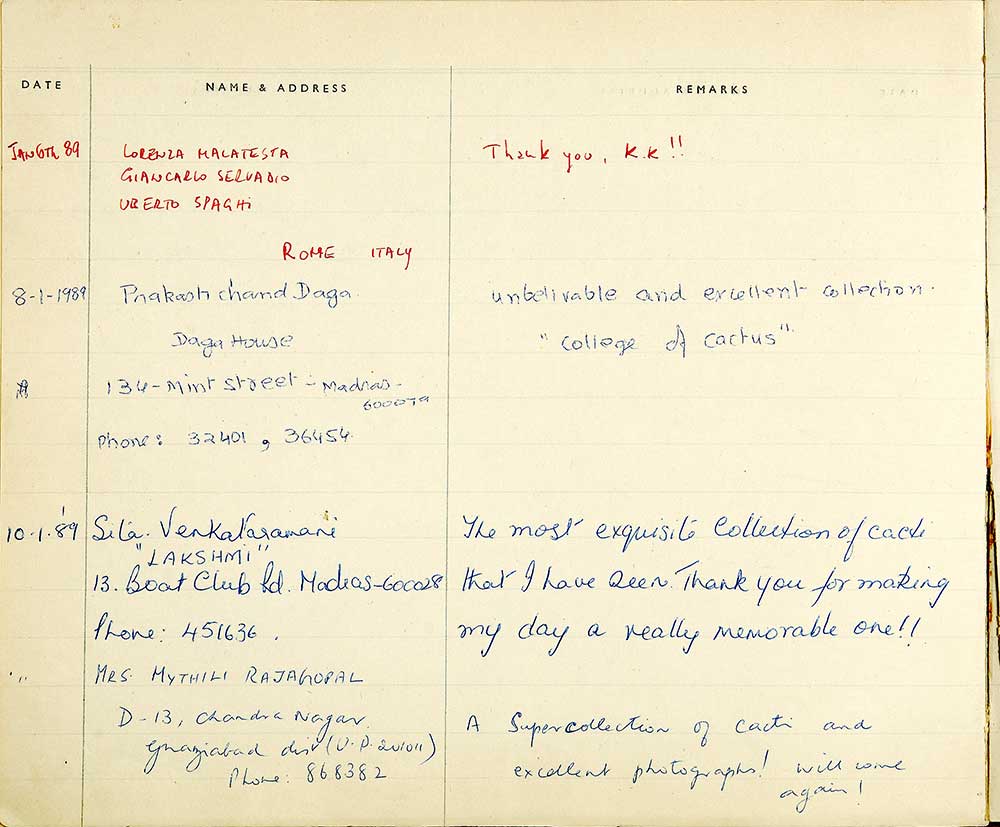 DATE NAME & ADDRESS REMARKS
JAN 6th 89 LORENZA MALATESTA Thank you, K.K!!
GIANCARLO SERVADIO
UBERTO SPAGHI
ROME ITALY
8-1-1989 Prakash chand Daga unbelivable and excellent collection.
Daga House "College of Cactus".
134-Mint street - Madras-
600079
Phone: 32401, 36454.
10.1.89 Sita. Venkataramani The most exquisite Collection of cacti
"LAKSHMI"
13. Boat Club Rd. Madras-600028 that I have seen. Thank you for making
Phone: 451636. my day a really memorable one!!
" MRS. MYTHILI RAJAGOPAL
D-13, Chandra Nagar A Super collection of cacti and
Ghaziabad dist (U.P. 201011) excellent photographs! will come
Phone: 868382 again!